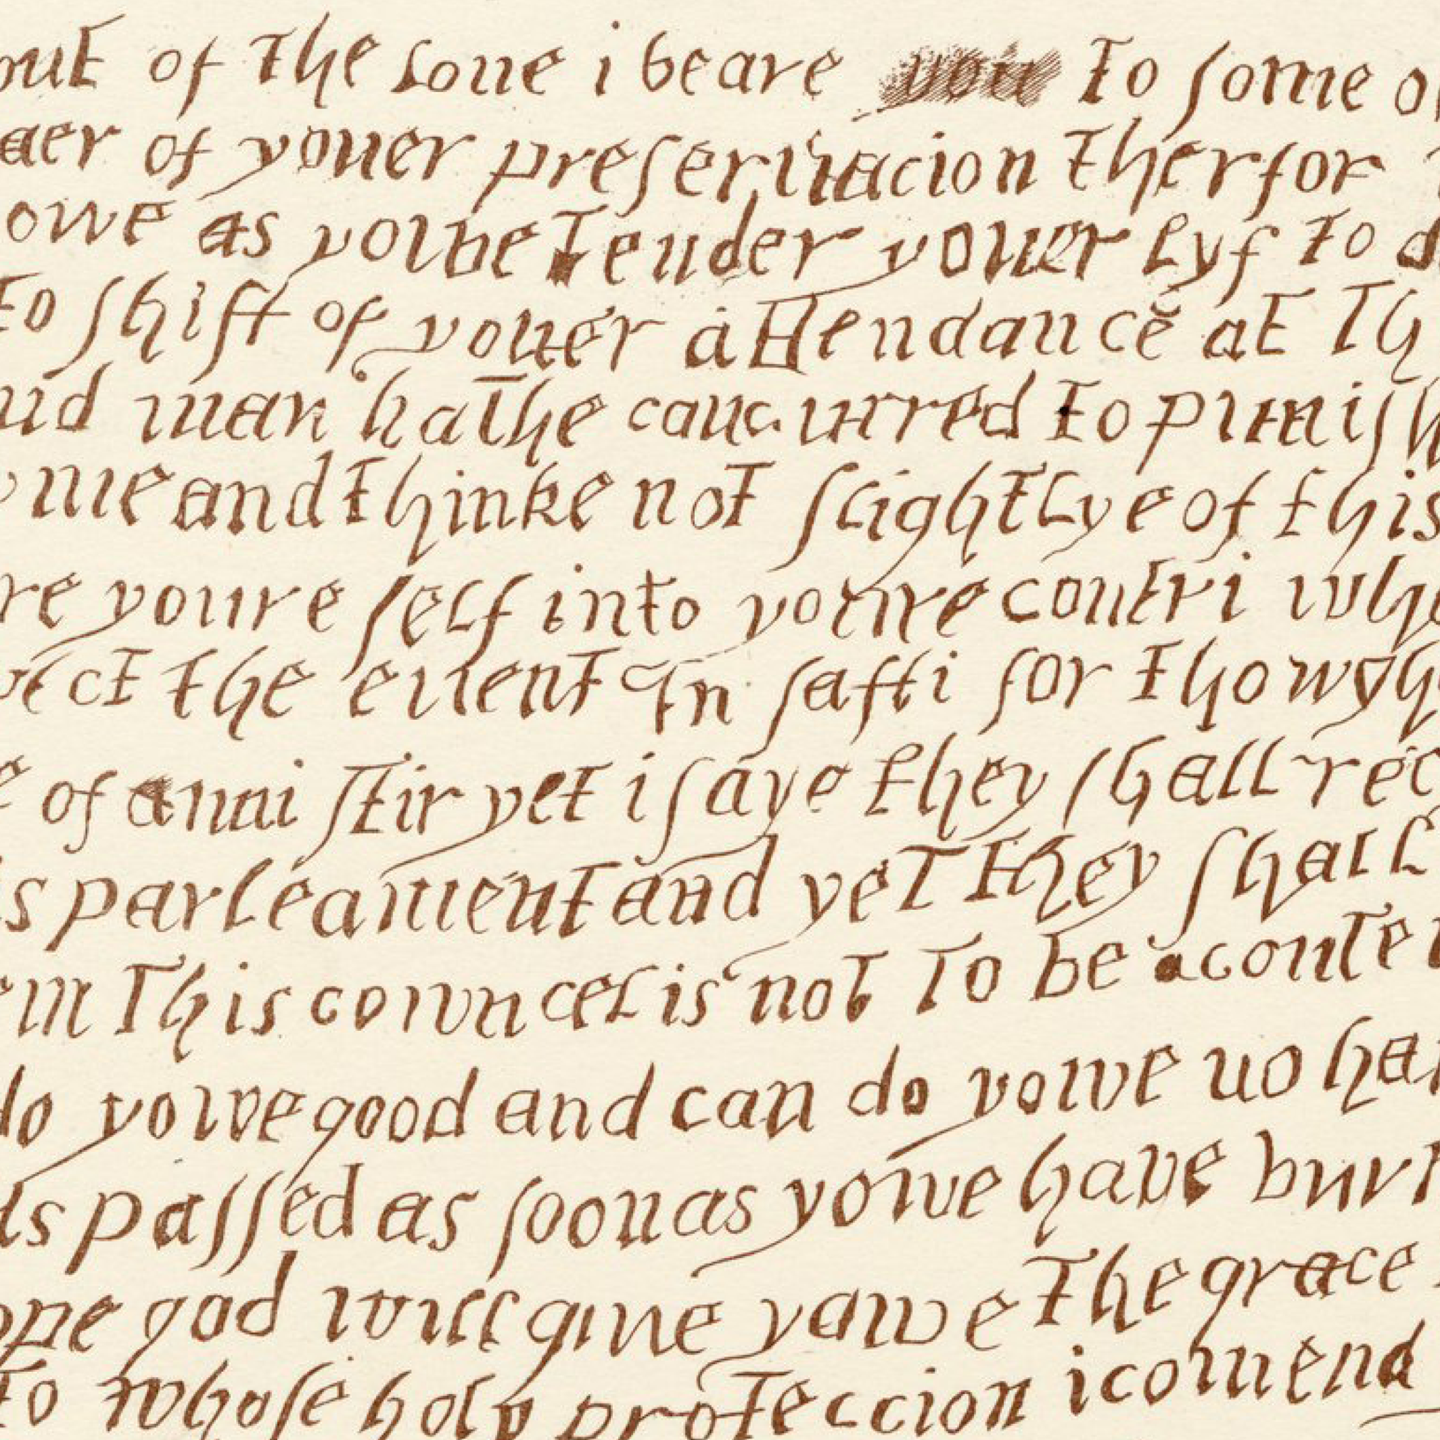 out of the loue i beare you to some of
caer of youer preseruacion therfor
yowe as yowe tender youer lyf to d
to shift of youer attendance at th
and man hathe concurred to punish
me and thinke not slightlye of this
re youre self into youre contri whe
pect the euent in safti for thowghe
of anni stir yet i saye they shall rec
s parleament and yet they shall
em This cowncel is not to be acontem
do yowe good and can do yowe no har
is passed as soon as yowe have burn
ope god will giue yowe the grace
to whose holy proteccion i comend